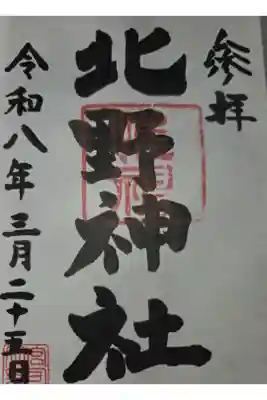 参拝
北野神社
令和八年三月二十五日